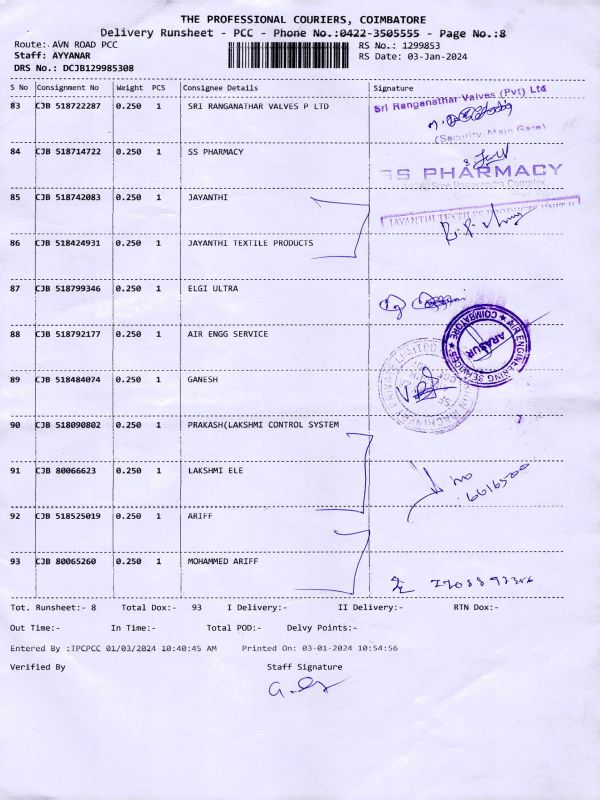 THE PROFESSIONAL COURIERS, COIMBATORE
Delivery Runsheet - PCC - Phone No.:0422-3505555 - Page No.:8
Route: AVN ROAD PCC RS No.: 1299853
Staff: AYYANAR RS Date: 03-Jan-2024
DRS No.: DCJB129985308
S No Consignment No Weight PCS Consignee Details Signature
83 CJB 518722287 0.250 1 SRI RANGANATHAR VALVES P LTD
Sri Ranganathar Valves (Pvt) Ltd
(Security, Main Gate)
84 CJB 518714722 0.250 1 SS PHARMACY
SS PHARMACY
85 CJB 518742083 0.250 1 JAYANTHI
JAYANTHI TEXTILES PRODUCTS UNIT II
86 CJB 518424931 0.250 1 JAYANTHI TEXTILE PRODUCTS
87 CJB 518799346 0.250 1 ELGI ULTRA
88 CJB 518792177 0.250 1 AIR ENGG SERVICE
AIR ENGINEERING SERVICES ★ COIMBATORE ★
ARASUR
89 CJB 518484074 0.250 1 GANESH
90 CJB 518090802 0.250 1 PRAKASH(LAKSHMI CONTROL SYSTEM
91 CJB 80066623 0.250 1 LAKSHMI ELE
92 CJB 518525019 0.250 1 ARIFF
93 CJB 80065260 0.250 1 MOHAMMED ARIFF
Tot. Runsheet:- 8 Total Dox:- 93 I Delivery:- II Delivery:- RTN Dox:-
Out Time:- In Time:- Total POD:- Delvy Points:-
Entered By :TPCPCC 01/03/2024 10:40:45 AM Printed On: 03-01-2024 10:54:56
Verified By Staff Signature